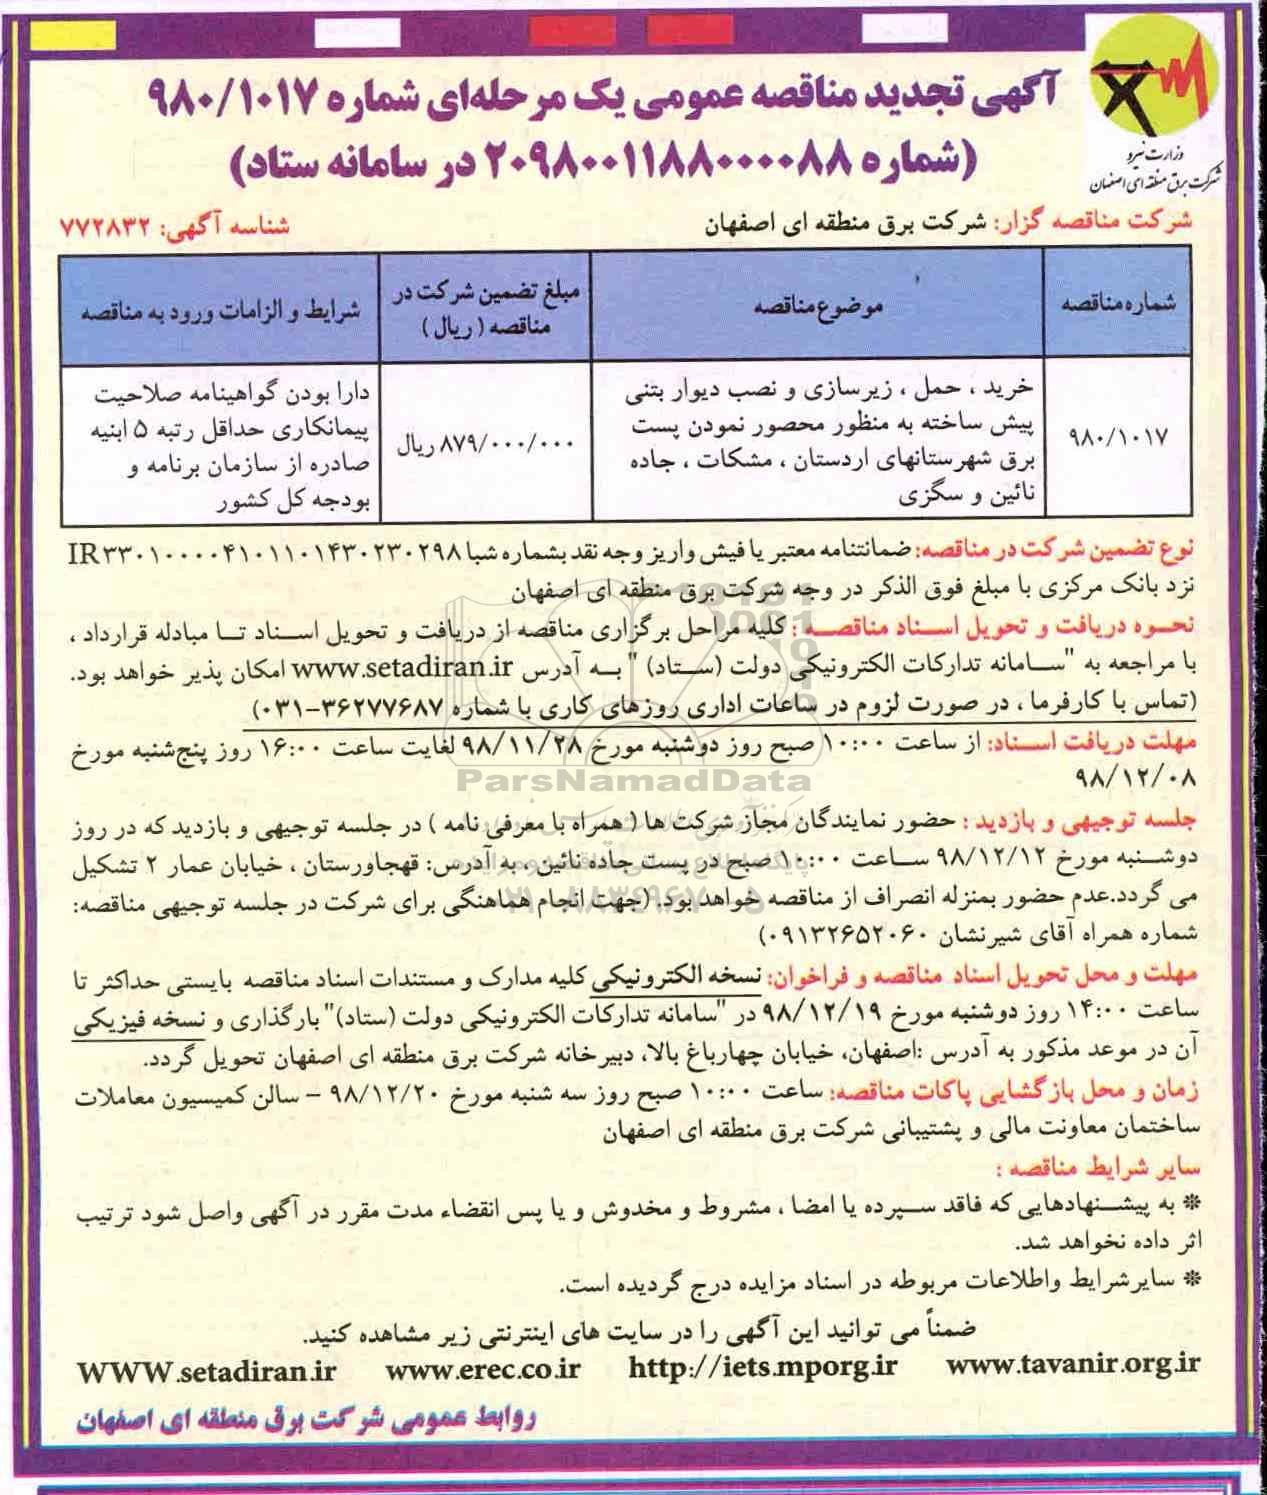 آگهی تجدید مناقصه عمومی یک مرحله‌ای شماره ۹۸۰/۱۰۱۷
(شماره ۲۰۹۸۰۰۱۱۸۸۰۰۰۰۸۸ در سامانه ستاد)
وزارت نیرو
شرکت برق منطقه ای اصفهان
شرکت مناقصه گزار: شرکت برق منطقه ای اصفهان
شناسه آگهی: ۷۷۲۸۳۲
شماره مناقصه
موضوع مناقصه
مبلغ تضمین شرکت در
مناقصه (ریال)
شرایط و الزامات ورود به مناقصه
۹۸۰/۱۰۱۷
خرید ، حمل ، زیرسازی و نصب دیوار بتنی
پیش ساخته به منظور محصور نمودن پست
برق شهرستانهای اردستان ، مشکات ، جاده
نائین و سگزی
۸۷۹/۰۰۰/۰۰۰ ریال
دارا بودن گواهینامه صلاحیت
پیمانکاری حداقل رتبه ۵ ابنیه
صادره از سازمان برنامه و
بودجه کل کشور
نوع تضمین شرکت در مناقصه: ضمانتنامه معتبر یا فیش واریز وجه نقد بشماره شبا IR۳۳۰۱۰۰۰۰۴۱۰۱۱۰۱۴۳۰۲۳۰۲۹۸
نزد بانک مرکزی با مبلغ فوق الذکر در وجه شرکت برق منطقه ای اصفهان
نحوه دریافت و تحویل اسناد مناقصه : کلیه مراحل برگزاری مناقصه از دریافت و تحویل اسناد تا مبادله قرارداد ،
با مراجعه به "سامانه تدارکات الکترونیکی دولت (ستاد) " به آدرس www.setadiran.ir امکان پذیر خواهد بود.
(تماس با کارفرما ، در صورت لزوم در ساعات اداری روزهای کاری با شماره ۳۶۲۷۷۶۸۷-۰۳۱)
مهلت دریافت اسناد: از ساعت ۱۰:۰۰ صبح روز دوشنبه مورخ ۹۸/۱۱/۲۸ لغایت ساعت ۱۶:۰۰ روز پنج‌شنبه مورخ
۹۸/۱۲/۰۸
ParsNamadData
جلسه توجیهی و بازدید : حضور نمایندگان مجاز شرکت ها ( همراه با معرفی نامه ) در جلسه توجیهی و بازدید که در روز
دوشنبه مورخ ۹۸/۱۲/۱۲ ساعت ۱۰:۰۰ صبح در پست جاده نائین ، به آدرس: قهجاورستان ، خیابان عمار ۲ تشکیل
می گردد.عدم حضور بمنزله انصراف از مناقصه خواهد بود. (جهت انجام هماهنگی برای شرکت در جلسه توجیهی مناقصه:
شماره همراه آقای شیرنشان ۰۹۱۳۲۶۵۲۰۶۰)
مهلت و محل تحویل اسناد مناقصه و فراخوان: نسخه الکترونیکی کلیه مدارک و مستندات اسناد مناقصه بایستی حداکثر تا
ساعت ۱۴:۰۰ روز دوشنبه مورخ ۹۸/۱۲/۱۹ در "سامانه تدارکات الکترونیکی دولت (ستاد)" بارگذاری و نسخه فیزیکی
آن در موعد مذکور به آدرس :اصفهان، خیابان چهارباغ بالا، دبیرخانه شرکت برق منطقه ای اصفهان تحویل گردد.
زمان و محل بازگشایی پاکات مناقصه: ساعت ۱۰:۰۰ صبح روز سه شنبه مورخ ۹۸/۱۲/۲۰ – سالن کمیسیون معاملات
ساختمان معاونت مالی و پشتیبانی شرکت برق منطقه ای اصفهان
سایر شرایط مناقصه :
* به پیشنهادهایی که فاقد سپرده یا امضا ، مشروط و مخدوش و یا پس انقضاء مدت مقرر در آگهی واصل شود ترتیب
اثر داده نخواهد شد.
* سایرشرایط واطلاعات مربوطه در اسناد مزایده درج گردیده است.
ضمناً می توانید این آگهی را در سایت های اینترنتی زیر مشاهده کنید.
WWW.setadiran.ir www.erec.co.ir http://iets.mporg.ir www.tavanir.org.ir
روابط عمومی شرکت برق منطقه ای اصفهان